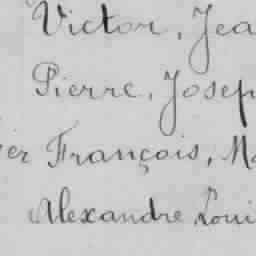 Victor, Jea
Pierre, Josep
ier François, Ma
Alexandre Loui